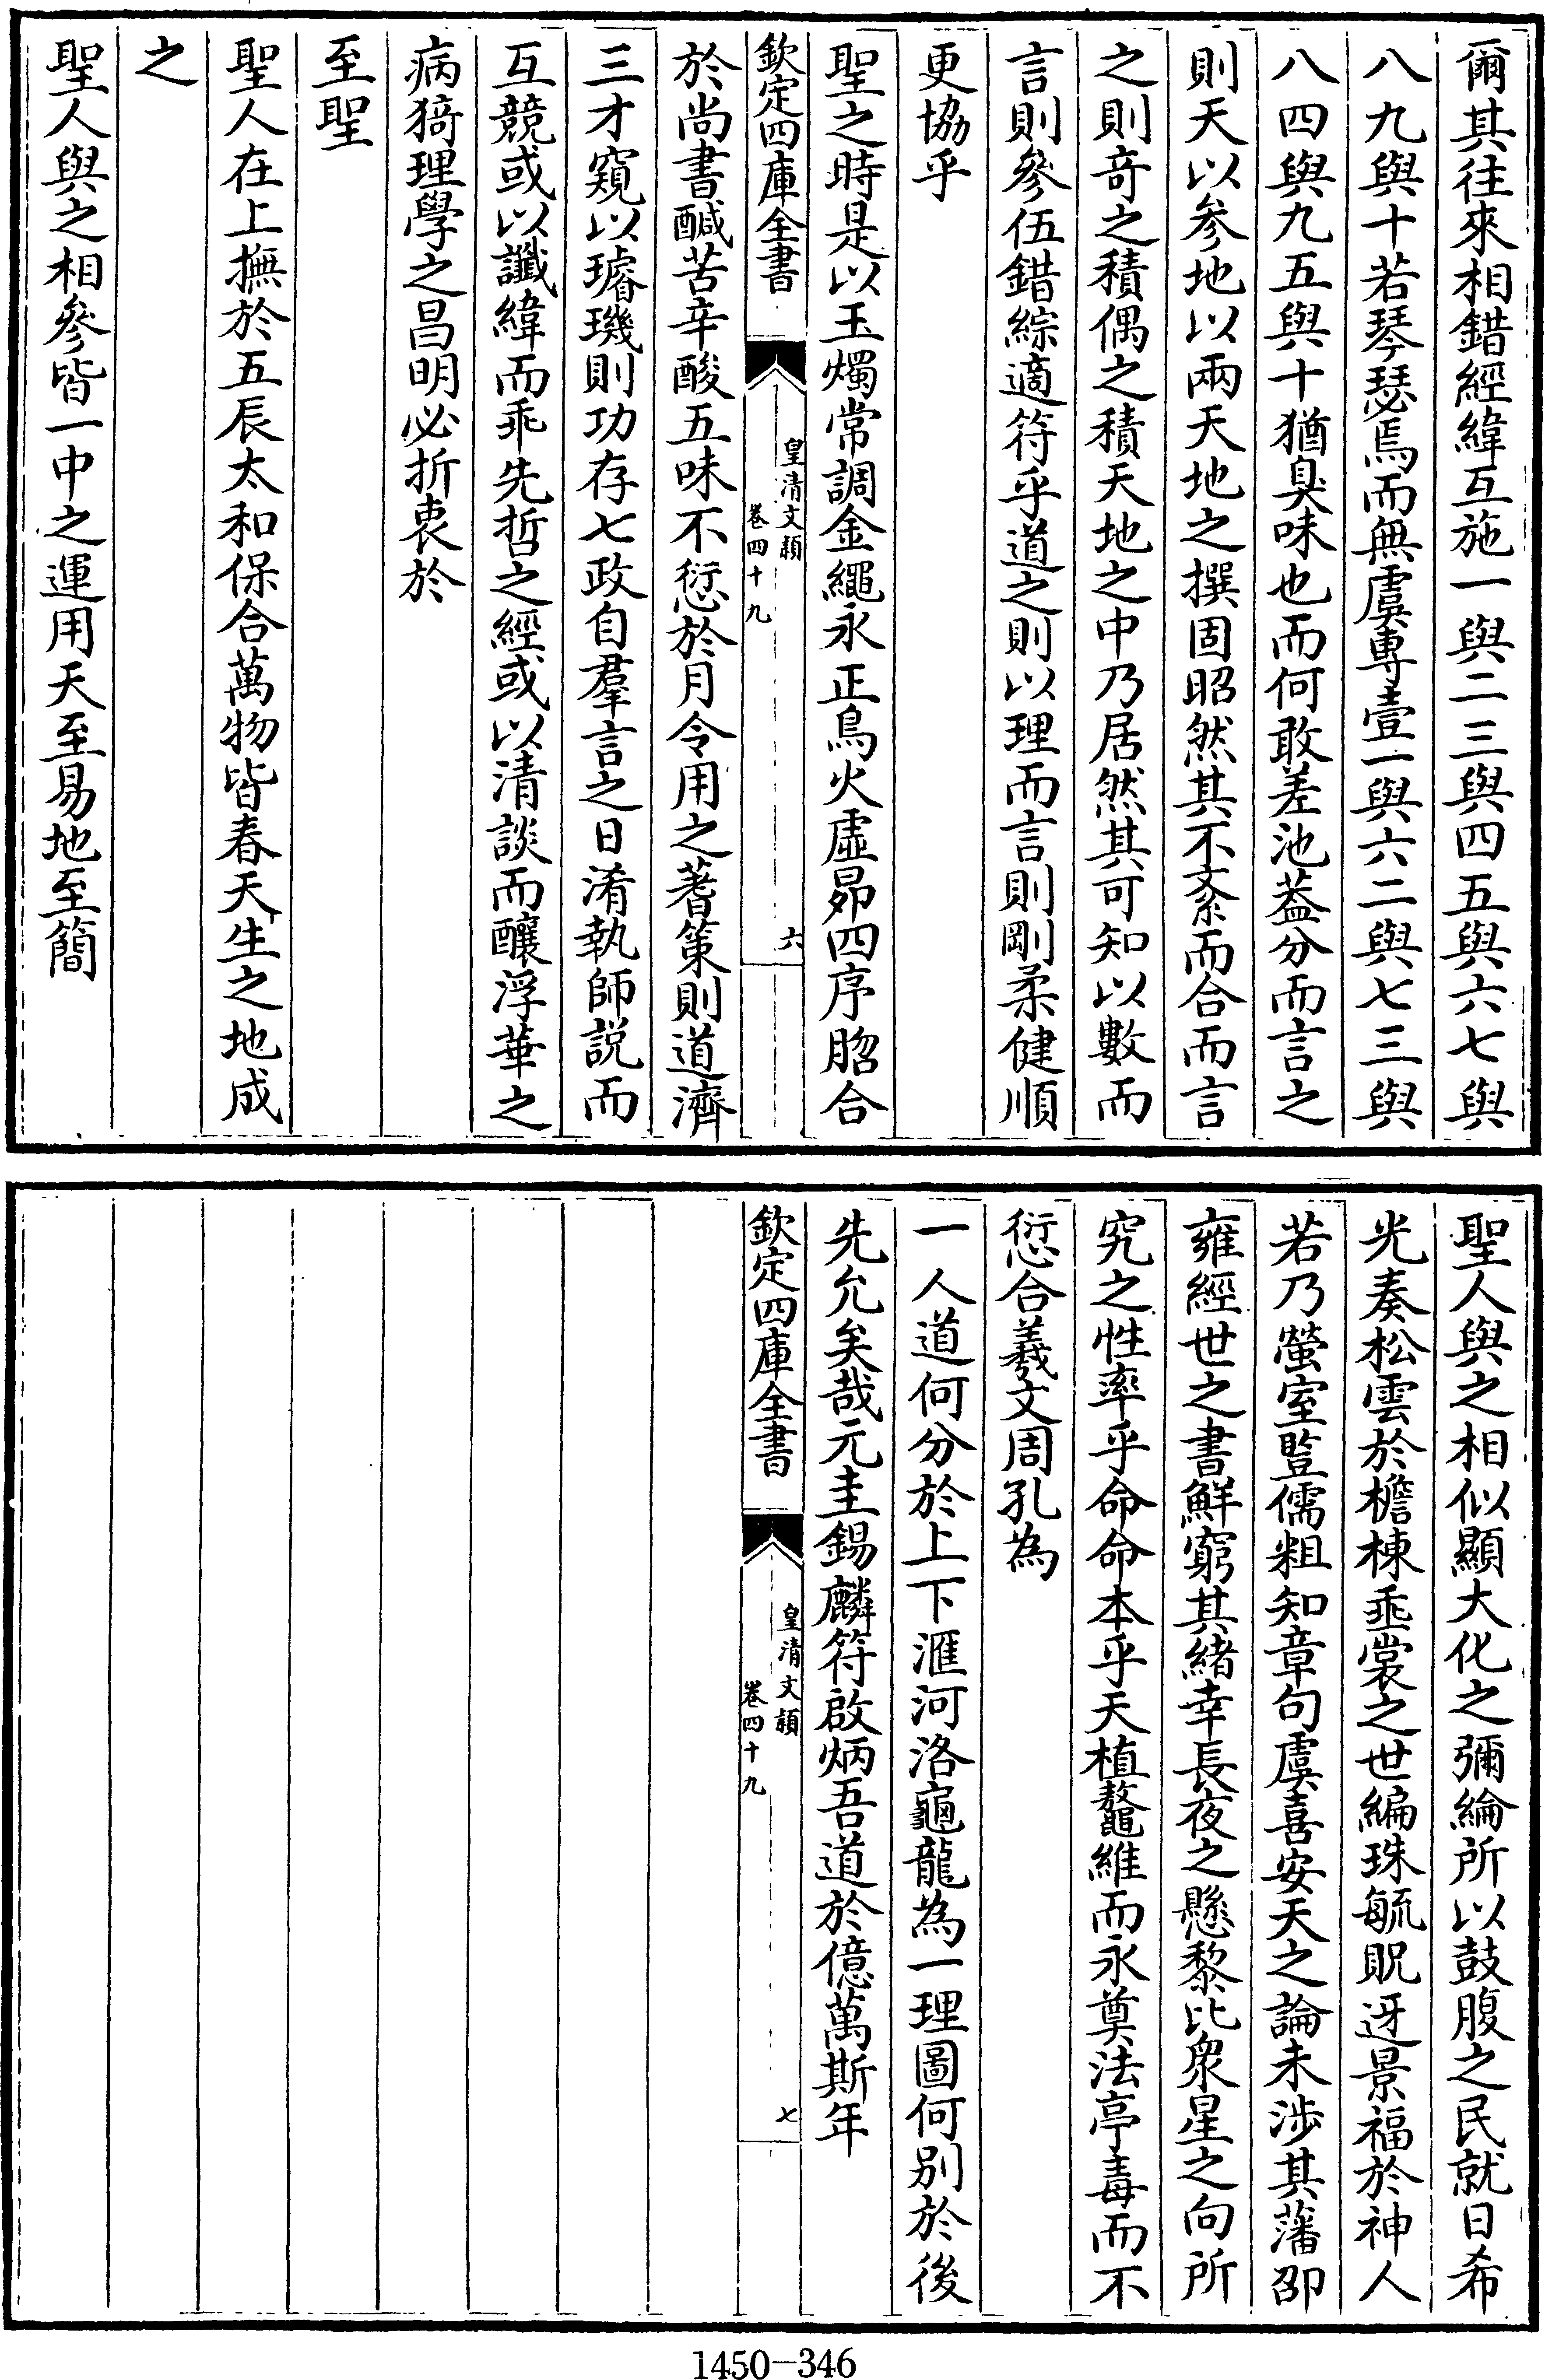 爾其往來相錯經緯互施一與二三與四五與六七與
八九與十若琴瑟焉而無虞專壹一與六二與七三與
八四與九五與十猶臭味也而何敢差池葢分而言之
則天以參地以兩天地之撰固昭然其不紊而合而言
之則奇之積偶之積天地之中乃居然其可知以數而
言則參伍錯綜適符乎道之則以理而言則剛柔健順
更協乎
聖之時是以玉燭常調金繩永正鳥火虛昴四序脗合
欽定四庫全書
皇清文穎
卷四十九
六
於尚書鹹苦辛酸五味不愆於月令用之蓍策則道濟
三才窺以璿璣則功存七政自羣言之日淆執師説而
互競或以讖緯而乖先哲之經或以清談而釀浮華之
病猗理學之昌明必折衷於
至聖
聖人在上撫於五辰太和保合萬物皆春天生之地成
之
聖人與之相參皆一中之運用天至易地至簡
聖人與之相似顯大化之彌綸所以鼓腹之民就日希
光奏松雲於檐棟垂裳之世編珠毓貺迓景福於神人
若乃螢室豎儒粗知章句虞喜安天之論未涉其藩邵
雍經世之書鮮窮其緒幸長夜之懸黎比衆星之向所
究之性率乎命命本乎天植鼇維而永奠法亭毒而不
愆合羲文周孔為
一人道何分於上下滙河洛龜龍為一理圖何别於後
先允矣哉元圭錫麟符啟炳吾道於億萬斯年
欽定四庫全書
皇清文穎
卷四十九
七
1450-346